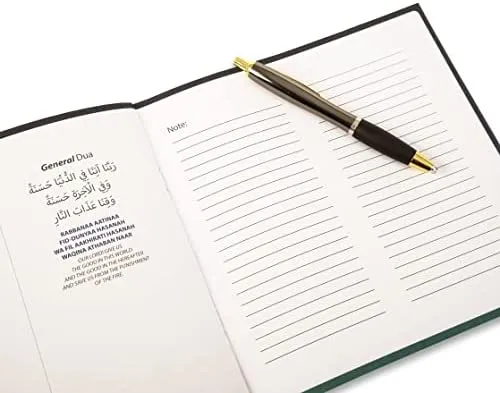 General Dua
رَبَّنَا آتِنَا فِي الدُّنْيَا حَسَنَةً
وَفِي الْآخِرَةِ حَسَنَةً
وَقِنَا عَذَابَ النَّارِ
RABBANAA AATINAA
FID-DUNYAA HASANAH
WA FIL AAKHIRATI HASANAH
WAQINA ATHABAN NAAR
OUR LORD! GIVE US
THE GOOD IN THIS WORLD
AND THE GOOD IN THE HEREAFTER
AND SAVE US FROM THE PUNISHMENT
OF THE FIRE.
Note: